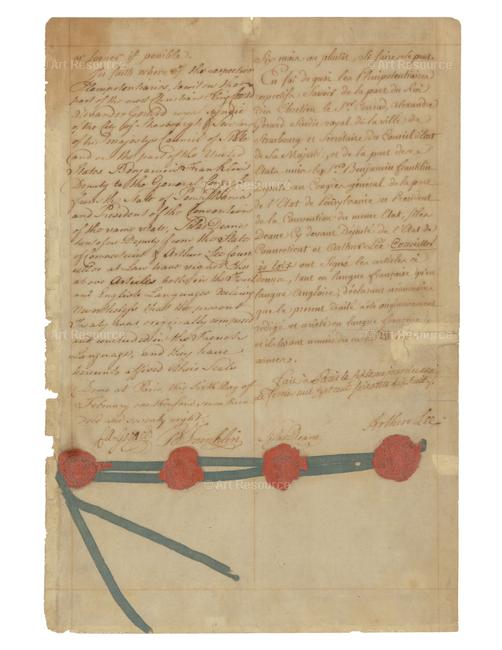 or sooner if possible.
In faith whereof the respective
Plenipotentiaries, to wit on the
part of the most Christian King
Alexander Gerard royal Syndic
of the City of Strasbourg & Secretary
of his Majesty's Council of State
and on the part of the United
States Benjamin Franklin
Deputy to the General Congress
from the State of Pennsylvania
and President of the Convention
of the same state, Silas Deane
heretofore Deputy from the State
of Connecticut & Arthur Lee Coun-
sellor at Law have signed the
above Articles both in the French
and English Languages declaring
Nevertheless that the present
Treaty was originally composed
and concluded in the French
Language, and they have
hereunto affixed their Seals
Done at Paris, the Sixth Day of
February, one thousand seven hun-
dred and seventy eight.
Six mois ou plutôt, Si faire se peut.
En foi de quoi les Plénipotentiaires
respectifs, Savoir de la part du Roi
très Chrétien le Sr. Conrad, Alexandre
Gerard Sindic royal de la ville de
Strasbourg et Secretaire du Conseil d'Etat
de Sa Majesté, et de la part des
Etats unis les Srs. Benjamin franklin
Député au Congrès général de la part
de l'Etat de Pensylvanie et President
de la Convention du même Etat, Silas
Deane Cy devant Député de l'Etat de
Connecticut et Arthur Lee Conseiller
ès loix ont Signé les articles ci
dessus, tant en langue françoise qu'en
langue Angloise, déclarant néanmoins
que le présent traité a été originairement
rédigé et arrêté en langue françoise
et ils les ont munis du cachet de leurs
armes.
fait à Paris le
B Franklin
Silas Deane
Arthur Lee
© Art Resource
© Art Resource
© Art Resource
© Art Resource
© Art Resource